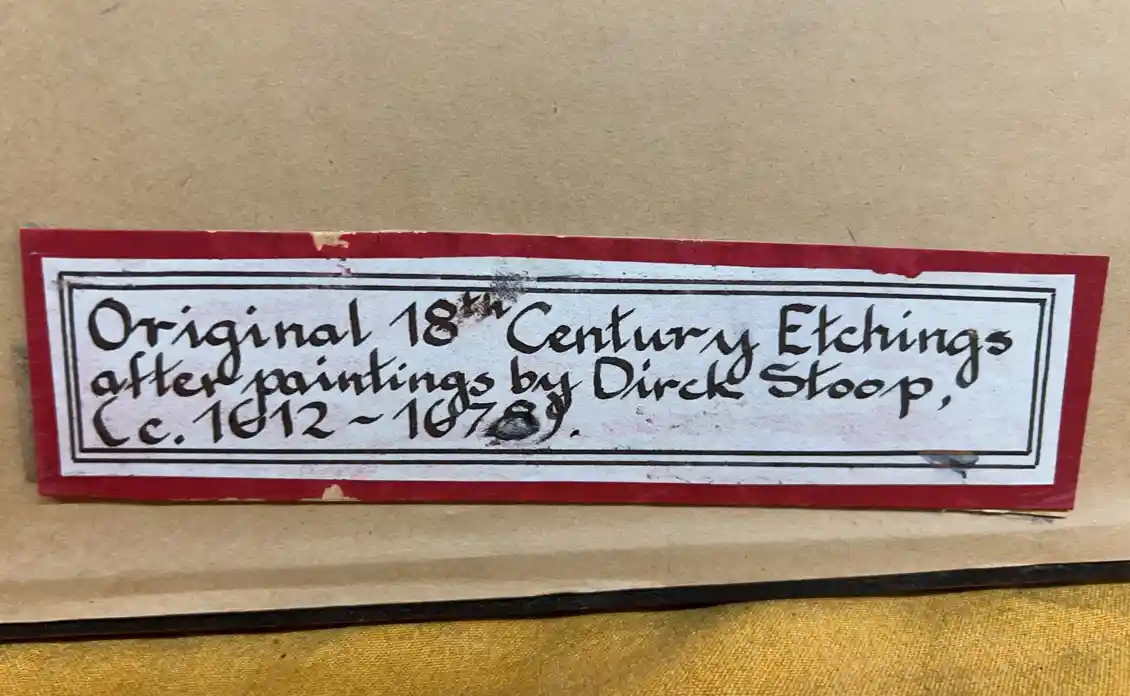 Original 18th Century Etchings
after paintings by Dirck Stoop,
(c. 1612 ~ 1678).